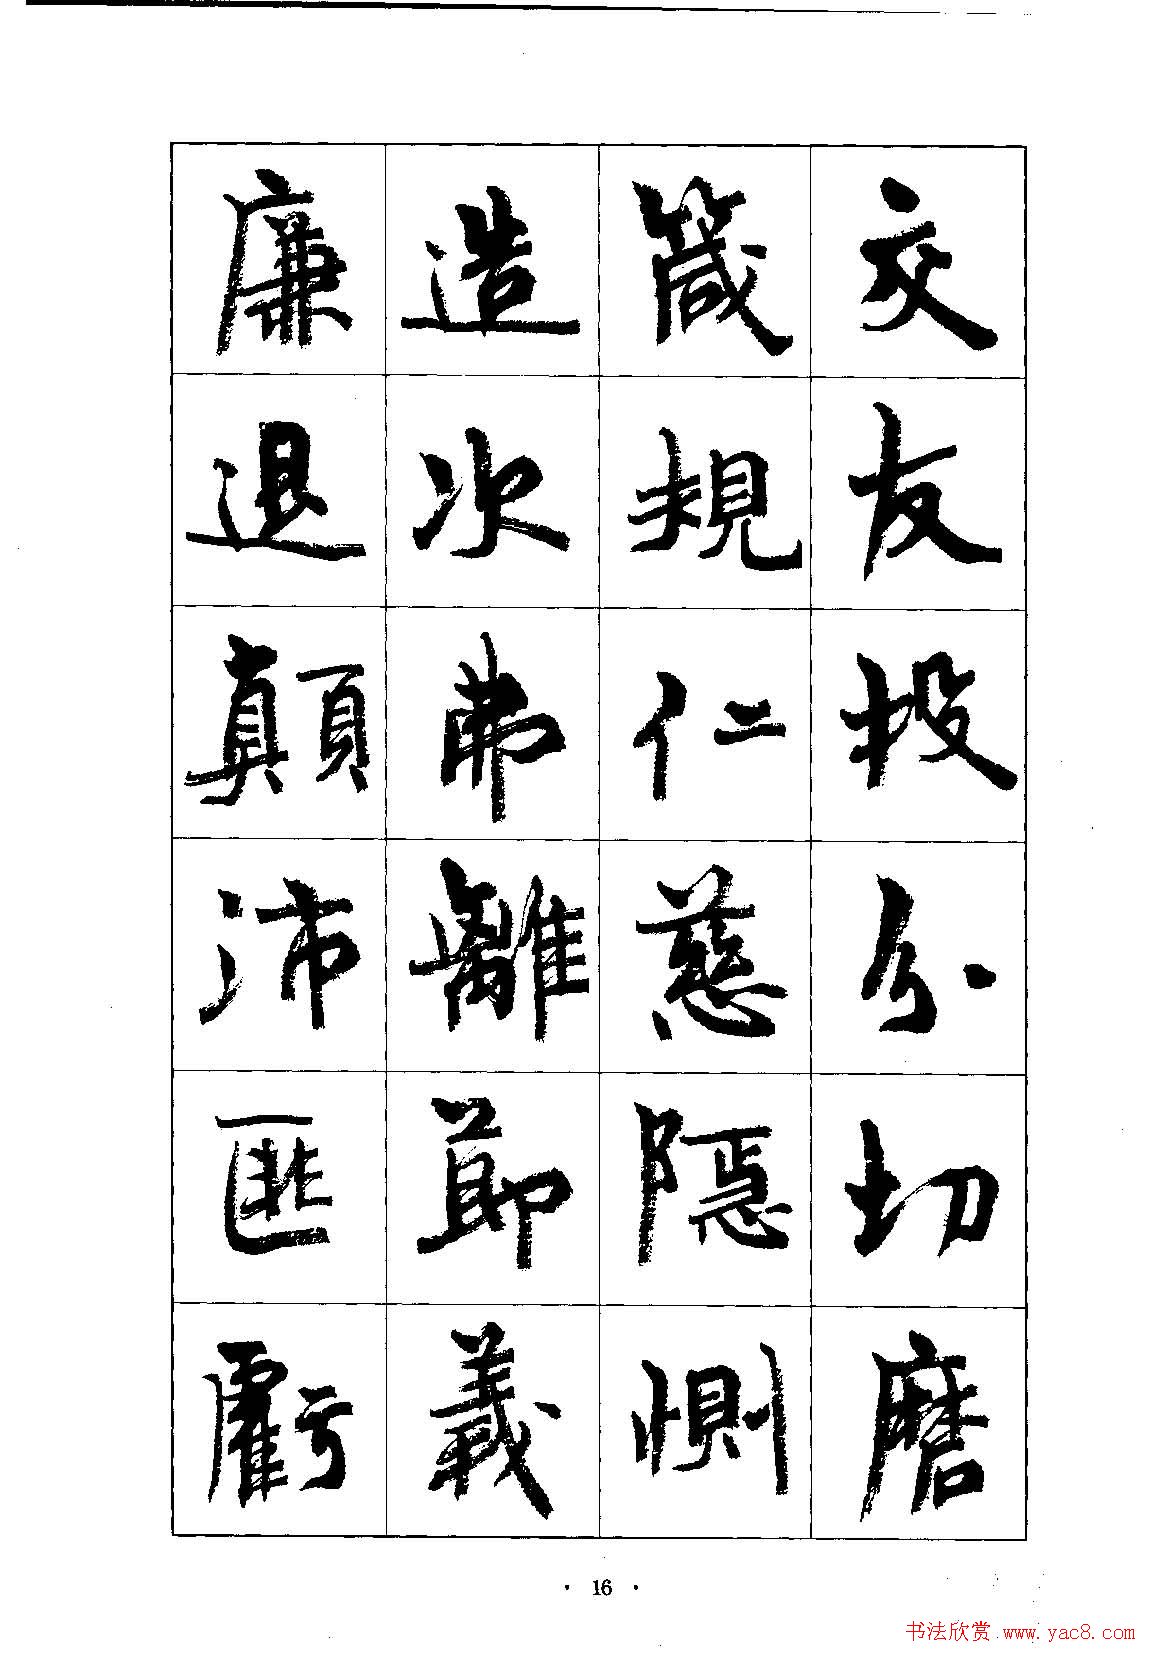 交友投分切磨
箴規仁慈隱惻
造次弗離節義
廉退顛沛匪虧
· 16 ·
书法欣赏 www.yac8.com